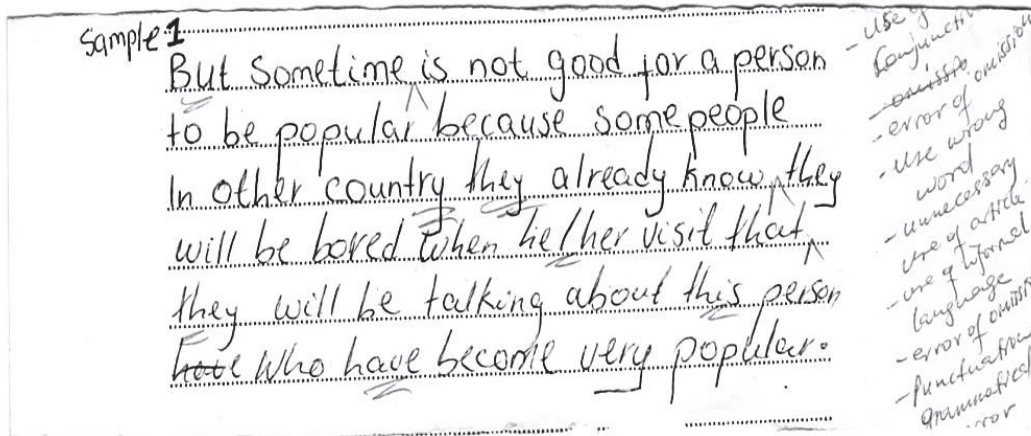 Sample 1
But Sometime is not good for a person
to be popular because some people
In other country they already know they
will be bored when he/her visit that
they will be talking about this person
have who have become very popular.
- use of
Conjunctive
- omissio
- error of omission
- use wrong
word
- unnecessary
use of article
- use of informal
language
- error of omission
- Punctuation
grammatical
error